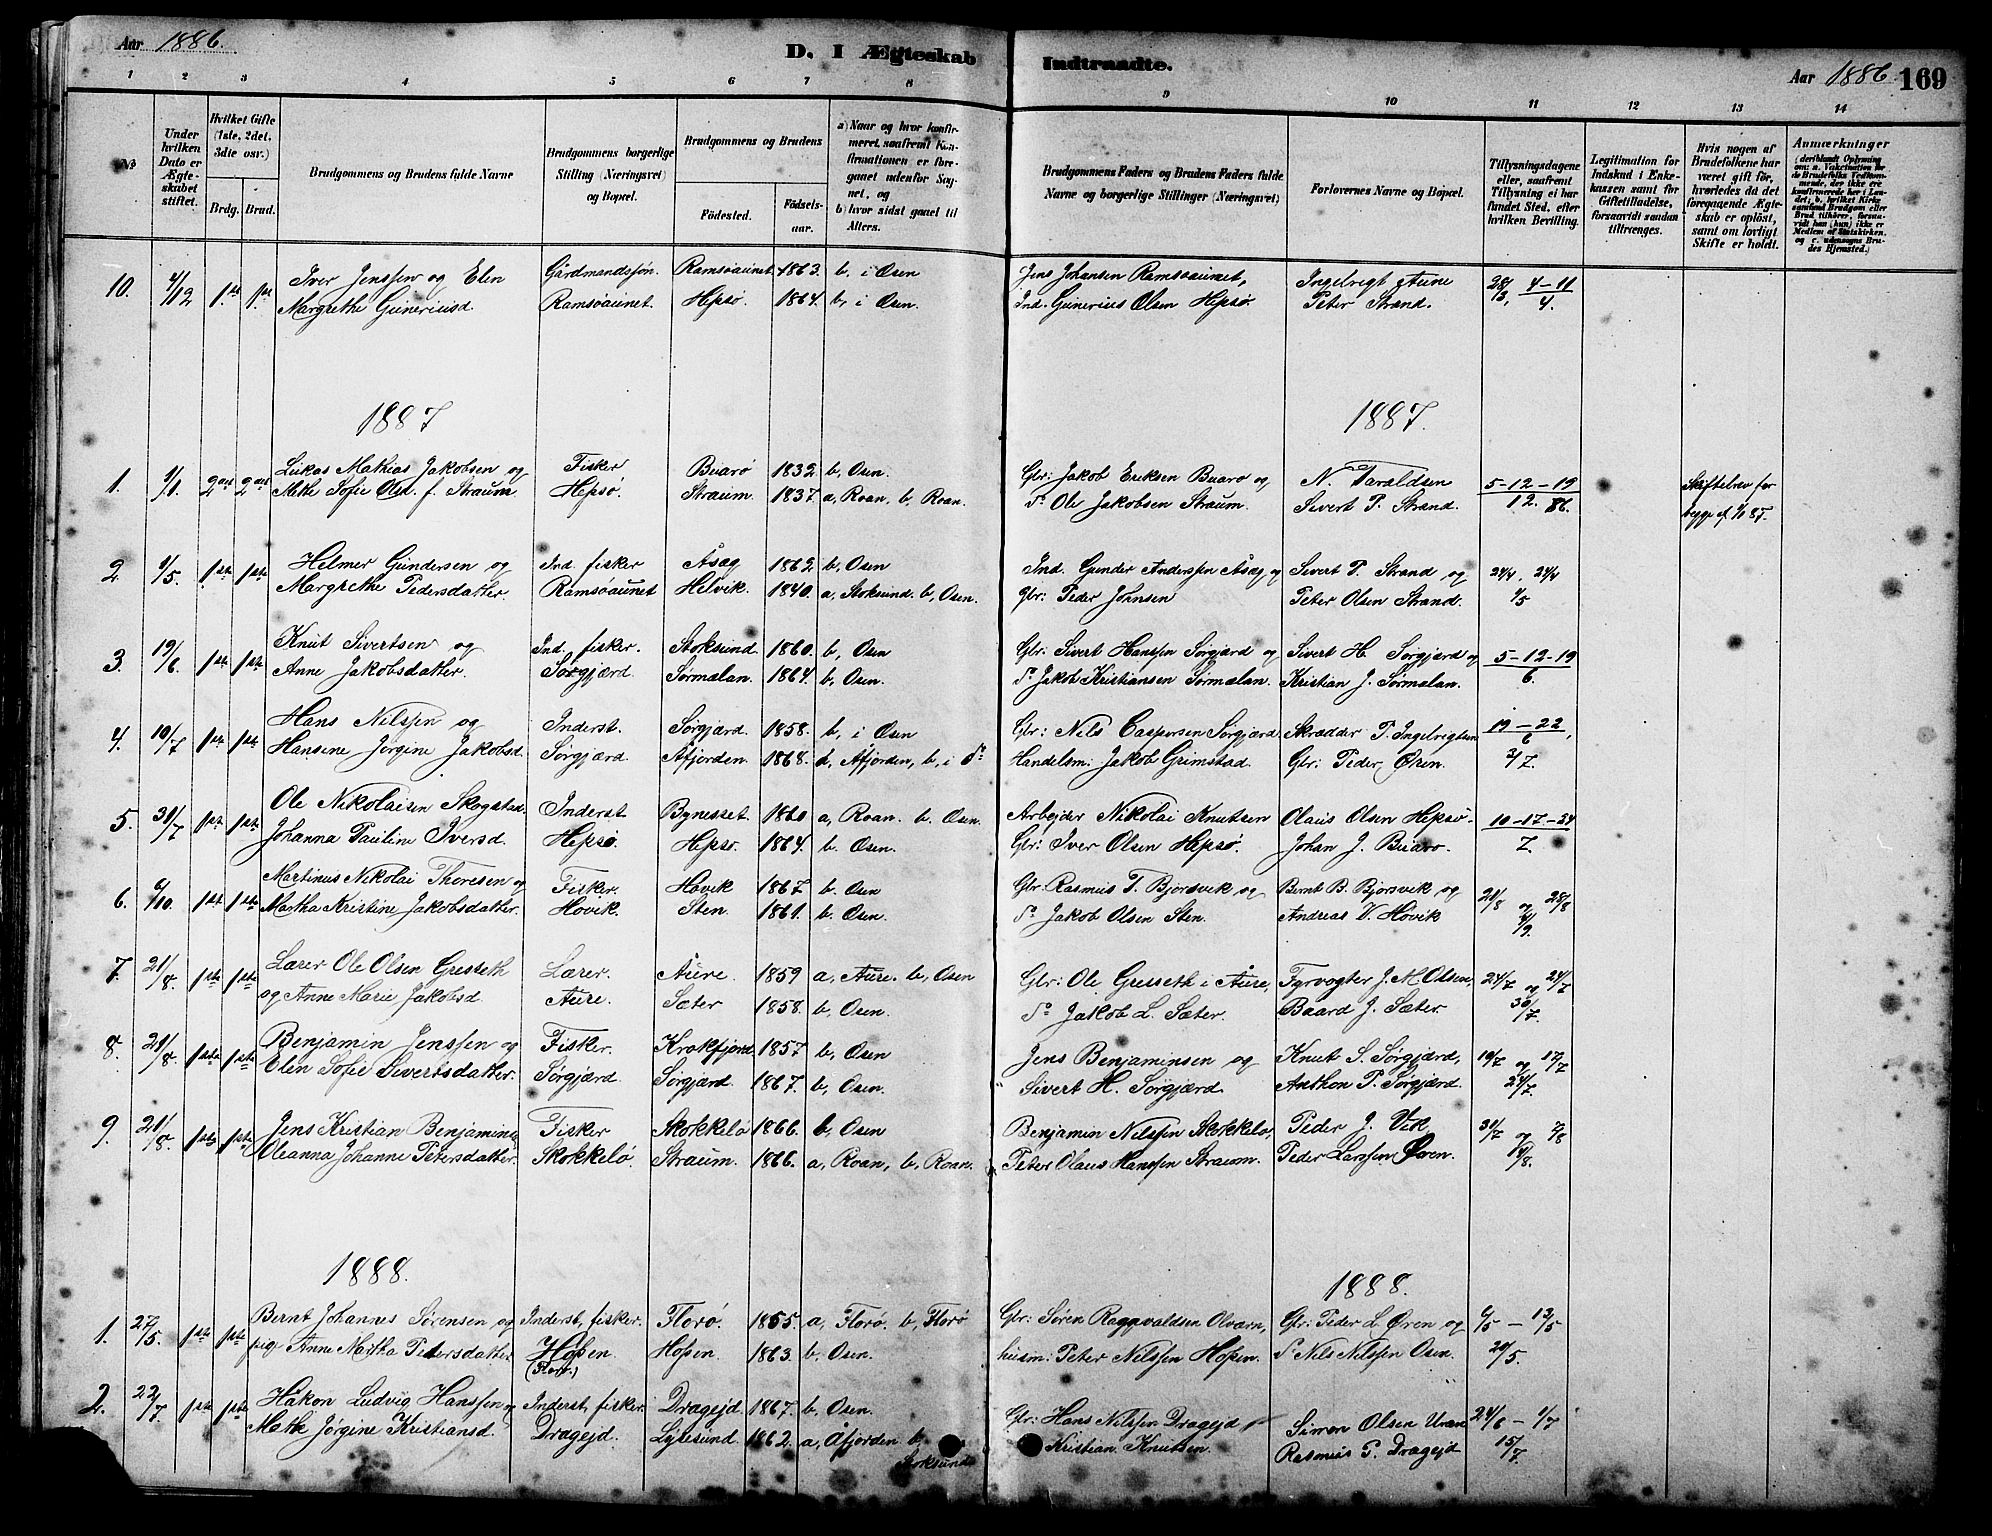 Aar 1886.
D. I Ægteskab Indtraadte.
Aar 1886 169
1 2 3 4 5 6 7 8 9 10 11 12 13 14
No
Under hvilken Dato er Ægteskabet stiftet.
Hvilket Gifte (1ste, 2det, 3die osv.)
Brdg. Brud.
Brudgommens og Brudens fulde Navne
Brudgommens borgerlige Stilling (Næringsvei) og Bopæl.
Brudgommens og Brudens
Fødested. Fødselsaar.
a) Naar og hvor konfirmeret, saafremt Konfirmationen er foregaaet udenfor Sognet, og
b) hvor sidst gaaet til Alters.
Brudgommens Faders og Brudens Faders fulde Navne og borgerlige Stillinger (Næringsvei)
Forlovernes Navne og Bopæl.
Tillysningsdagene eller, saafremt Tillysning ei har fundet Sted, efter hvilken Bevilling.
Legitimation for Indskud i Enkekassen samt for Giftetilladelse, forsaavidt saadan tiltrænges.
Hvis nogen af Brudefolkene har været gift før, hvorledes da det foregaaende Ægteskab er opløst, samt om lovligt Skifte er holdt.
Anmærkninger
10. 4/12 1ste 1ste Iver Jenssen og Elen Gårdmandssøn. Ramsøaunet 1863. b, i Osen Jens Johansen Ramsøaunet, Ingelvrigt Aune 28/3, 4-11
Margrethe Guneriusd. Ramsøaunet. Hepsø. 1864. b, i Osen. Ind. Gunerius Olsen Hepsø. Peter Strand. 4.
1887 1887.
1. 9/1 2det 2det Lukas Mathias Jakobsen og Fisker Buarø 1832. b, Osen. Gbr: Jakob Eriksen Buarø og N. Taraldsen 5-12-19 Skiftebrev for
Methe Sofie Olsd. f. Straum. Hepsø. Straum. 1837. a, Roan, b, Roan. So Ole Jakobsen Straum. Sivert P. Strand. 12. 86. begge
2 9/5. 1ste 1ste Helmer Gundersen og Ind. fisker Åsæg 1862. b, Osen Ind. Gunder Anderssen Åsæg og Sivert P. Strand og 24/4
Margrethe Pedersdatter. Ramsøaunet Helvik. 1840. a, Stoksund. b, Osen. Gbr: Peder Johnsen Peter Olsen Strand. 1/5
3. 19/6 1ste 1ste Knut Sivertsen og Ind. fisker. Stoksund. 1860. b, Osen Gbr: Sivert Hanssen Sørgjærd og Sivert H. Sørgjærd og 5-12-19
Anne Jakobsdatter. Sørgjærd. Sørmælan. 1864. b, Osen. So Jakob Kristiansen Sørmælan. Kristian J. Sørmælan. 6.
4. 10/7 1ste 1ste Hans Nilssen og Inderst. Sørgjærd. 1858. b, i Osen Gbr: Nils Caspersen Sørgjærd. Skrædder P. Ingebrigtsen 19-22/6,
Hansine Jørgine Jakobsd. Sørgjærd Åfjorden. 1868. a, Åfjorden, b, i So Handelsm: Jakob Grimstad. Gbr: Peder Osen. 3/7.
5. 30/7 1ste 1ste Ole Nikolaisen Skogstad Inderst Bynesset 1860 a, Roan. b, Osen. Arbejder Nikolai Knutsen Olaus Olsen Hepsø- 10-17-24
Johanna Pauline Iversd. Hepsø. Hepsø. 1864. b. Osen. Gbr: Iver Olsen Hepsø. Johan J. Buarø. 7.
6. 9/10. 1ste 1ste Martinus Nikolai Thoresen og Fisker. Høvik 1867 b. Osen Gbr: Rasmus T. Bjørsvik og Bernt B. Bjørsvik og 21/8 og 28/8
Martha Kristine Jakobsdatter. Høvik. Sten. 1861. b. Osen. So Jakob Olsen Sten. Andreas V. Høvik 4/9.
7. 21/8. 1ste 1ste Lærer Ole Olsen Gresseth Lærer. Aure. 1859 a, Aure. b, Osen Gbr: Ole Gresseth i Aure, Fyrvogter J. M. Olsen, 24/7 og 24/7
og Anne Marie Jakobsd. Aure. Sæter 1858. b, Osen. So Jakob L. Sæter. Baard J. Sæter. 30/7.
8. 21/8. 1ste 1ste Benjamin Jenssen og Fisker. Krokfjord. 1857. b, Osen Jens Benjaminsen og Knut S. Sørgjærd, 10/7 og 17/7
Elen Sofie Sivertsdatter. Sørgjærd. Sørgjærd. 1867. b, Osen. Sivert H. Sørgjærd Anthon P. Sørgjærd. 24/7.
9. 21/8. 1ste 1ste Jens Kristian Benjamins. Fisker Skokkelø 1866. b, Osen Benjamin Nilssen Skokkelø, Peder J. Vik 31/7 og 7/8
Oleanna Johanne Petersdatter. Skokkelø. Straum. 1866. a, Roan, b, Roan. Peter Olaus Hanssen Straum. Peder Larssen Øren. 14/8.
1888. 1888.
1. 27/5. 1ste 1ste Bernt Johannes Sørensen og Inderst, fisker. Florø. 1855. a, Florø. b, Florø Gbr: Søren Ragnvaldsen Olværn, Gbr: Peder L. Øren og 6/5 - 13/5
pige Anne Martha Pedersdatter. Hopen (Florø.) Hopen. 1863. b, Osen. husm: Peter Nilssen Hopen. So Nils Nilssen Osen. 20/5.
2. 22/7. 1ste 1ste Håkon Ludvig Hanssen og Inderst, fisker. Drageid 1867. b, Osen. Gbr: Hans Nilssen Drageid Simon Olsen Uran 24/6 - 1/7
Methe Jørgine Kristiansd. Drageid. Lysøsund. 1862. a, Åfjorden b, Stoksund Kristian Knutsen. Rasmus P. Drageid 15/7.